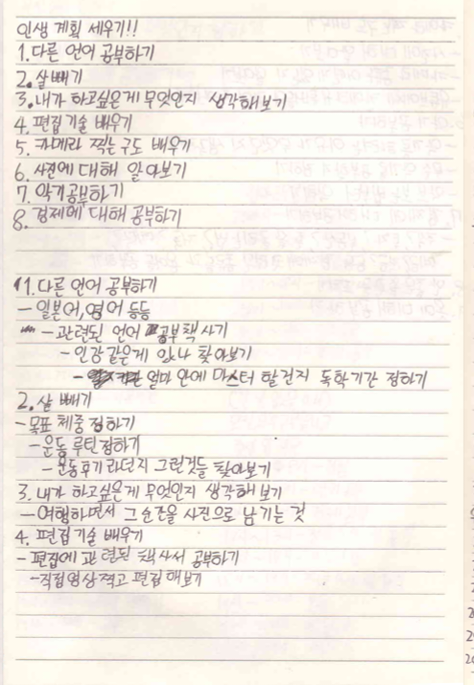 인생 계획 세우기!!
1. 다른 언어 공부하기
2. 살빼기
3. 내가 하고싶은게 무엇인지 생각해보기
4. 편집 기술 배우기
5. 카메라 찍는구도 배우기
6. 사진에 대해 알아보기
7. 악기공부하기
8. 경제에 대해 공부하기
1. 다른 언어 공부하기
- 일본어, 영어 등등
- 관련된 언어 공부책 사기
- 인강같은게 있나 찾아보기
- 얼마 안에 마스터 할건지 독학기간 정하기
2. 살 빼기
- 목표 체중 정하기
- 운동루틴정하기
- 운동후기라던지 그런것들 찾아보기
3. 내가 하고싶은게 무엇인지 생각해보기
- 여행하면서 그 순간을 사진으로 남기는 것
4. 편집기술 배우기
- 편집에 관련된 책사서 공부하기
- 직접영상 찍고 편집해보기